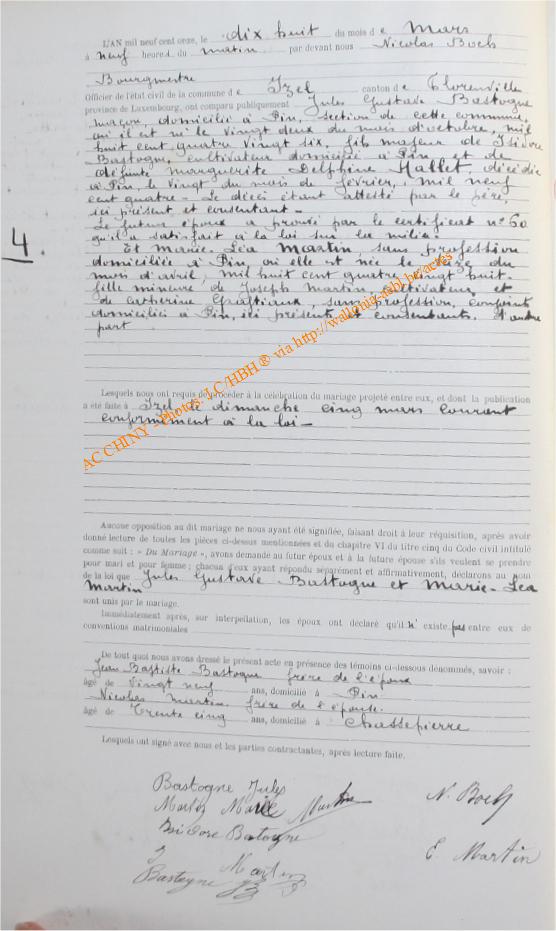 L'AN mil neuf cent onze, le dix huit du mois de Mars
à neuf heures du matin par devant nous Nicolas Boeb
Bourgmestre
Officier de l'état civil de la commune de Izel canton de Florenville
province de Luxembourg, ont comparu publiquement Jules Gustave Bastogne
maçon, domicilié à Pin, section de cette commune,
où il est né le vingt deux du mois d'octobre, mil
huit cent quatre vingt six, fils majeur de Isidore
Bastogne, cultivateur domicilié à Pin et de
défunte Marguerite Delphine Hallet décédée
à Pin, le vingt du mois de février, mil neuf
cent quatre - Le décès étant attesté par le père,
ici présent et consentant -
Le futur époux a prouvé par le certificat n° 60
qu'il a satisfait à la loi sur la milice -
4.
Et Marie-Léa Martin sans profession
domiciliée à Pin, où elle est née le seize du
mois d'avril, mil huit cent quatre vingt huit.
fille mineure de Joseph Martin, cultivateur, et
de Catherine sans profession, conjoints
domiciliés à Pin, ici présents et consentants. d'autre
part
Lesquels nous ont requis de procéder à la célébration du mariage projeté entre eux, et dont la publication
a été faite à Izel le dimanche cinq mars courant
conformément à la loi -
Aucune opposition au dit mariage ne nous ayant été signifiée, faisant droit à leur réquisition, après avoir
donné lecture de toutes les pièces ci-dessus mentionnées et du chapitre VI du titre cinq du Code civil intitulé
comme suit : « Du Mariage », avons demandé au futur époux et à la future épouse s'ils veulent se prendre
pour mari et pour femme ; chacun d'eux ayant répondu séparément et affirmativement, déclarons au nom
de la loi que Jules Gustave Bastogne et Marie-Léa
Martin
sont unis par le mariage.
Immédiatement après, sur interpellation, les époux ont déclaré qu'il n'existe pas entre eux de
conventions matrimoniales
De tout quoi nous avons dressé le présent acte en présence des témoins ci-dessous dénommés, savoir :
Jean Baptiste Bastogne frère de l'époux
âgé de vingt neuf ans, domicilié à Pin
Nicolas Martin frère de l'épouse.
âgé de Trente cinq ans, domicilié à Chassepierre
Lesquels ont signé avec nous et les parties contractantes, après lecture faite.
Bastogne Jules
Martin Marie Martin
N. Boeb
Isidore Bastogne
E. Martin
J Martin
Bastogne JB
AC CHINY - Photos: LC/HBH ® via http://wallonia-asbl.be/actes